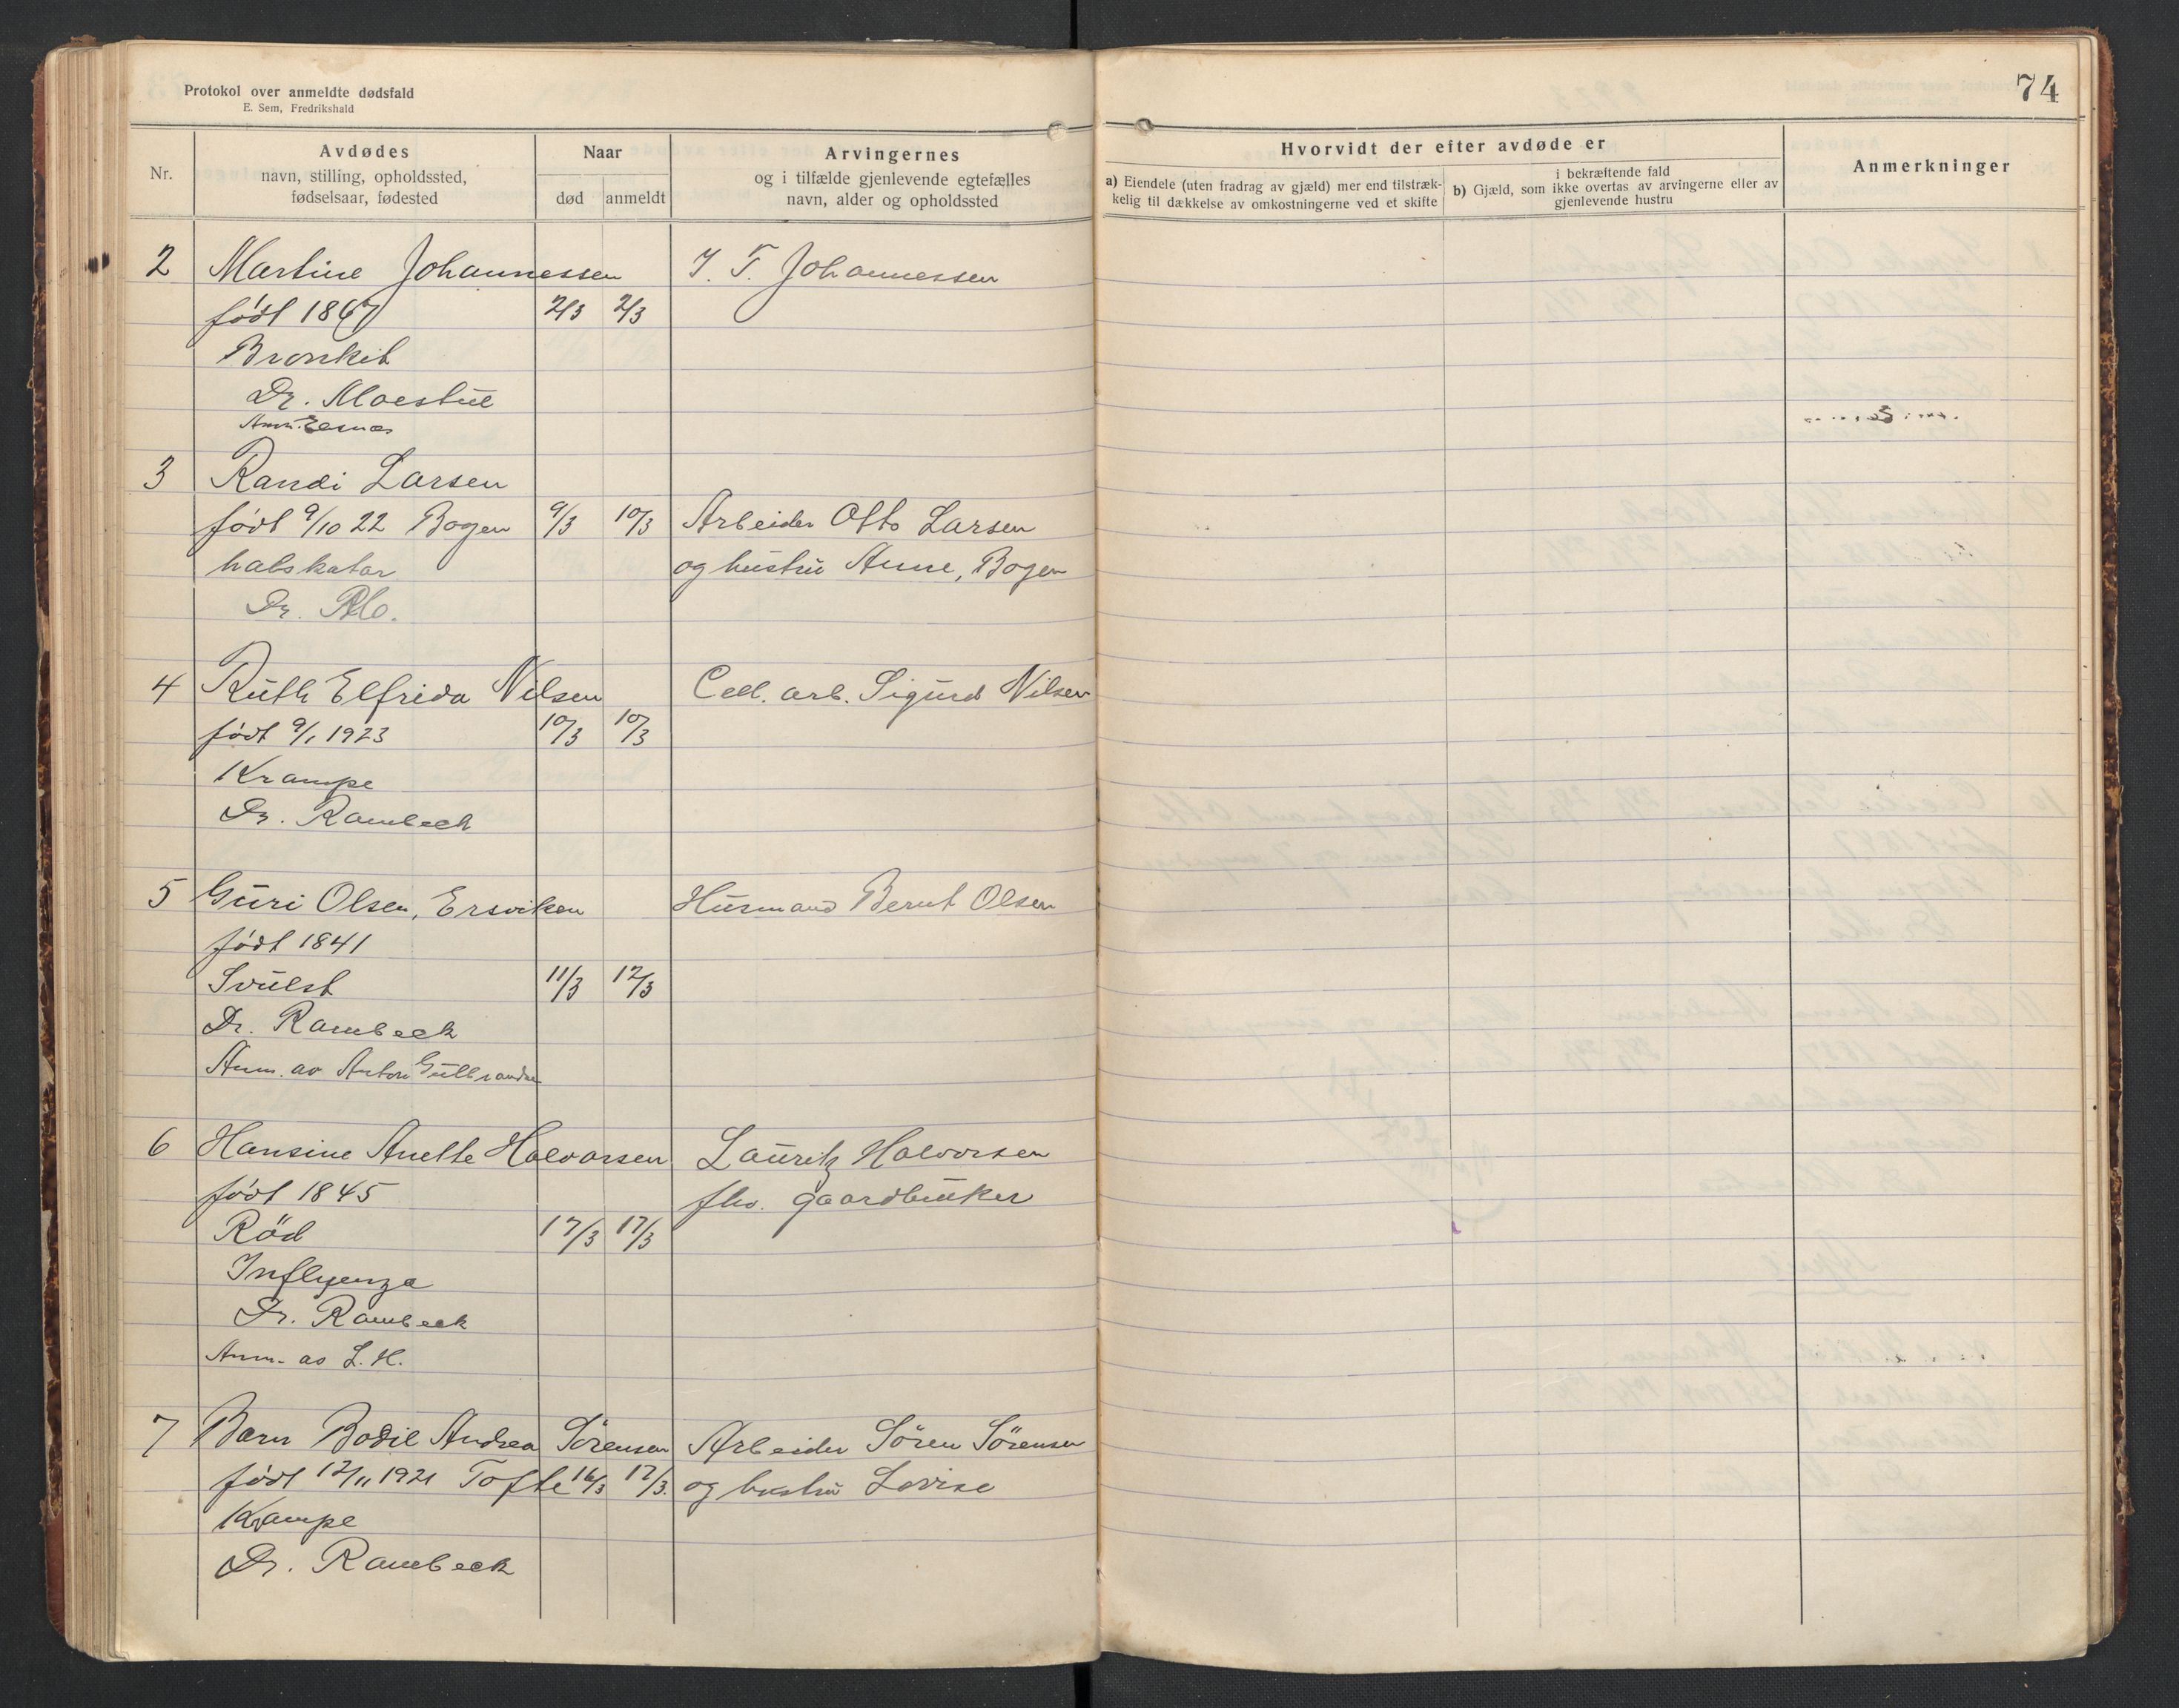 Protokol over anmeldte dødsfald
E. Sem, Fredrikshald
74
Nr.
Avdødes
navn, stilling, opholdssted,
fødselsaar, fødested
Naar
død anmeldt
Arvingernes
og i tilfælde gjenlevende egtefælles
navn, alder og opholdssted
Hvorvidt der efter avdøde er
a) Eiendele (uten fradrag av gjæld) mer end tilstræk-
kelig til dækkelse av omkostningerne ved et skifte
i bekræftende fald
b) Gjæld, som ikke overtas av arvingerne eller av
gjenlevende hustru
Anmerkninger
2 Martine Johannessen J. F. Johannessen
født 1867 2/3 2/3
Bronkit
Dr. Moestue
Anm.
3 Randi Larsen
født 9/10 22 Bogen 9/3 10/3 Arbeider Otto Larsen
halskatar og hustru Anne, Bogen
Dr.
4 Ruth Elfrida Nilsen Cell. arb. Sigurd Nilsen
født 9/1 1923 10/3 10/3
Krampe
Dr. Rambeck
5 Guri Olsen, Ersviken Husmand Bernt Olsen
født 1841
Svulst 11/3 12/3
Dr. Rambeck
Anm. av Anton Gulbrandsen
6 Hansine Anette Halvorsen Lauritz Halvorsen
født 1845 fhv. gaardbruker
Röd 17/3 17/3
Influenza
Dr. Rambeck
Anm. av L. H.
7 Barn Bodil Andrea Sörensen Arbeider Sören Sörensen
født 12/11 1921 Tofte 16/3 17/3. og hustru Lovise
Krampe
Dr. Rambeck